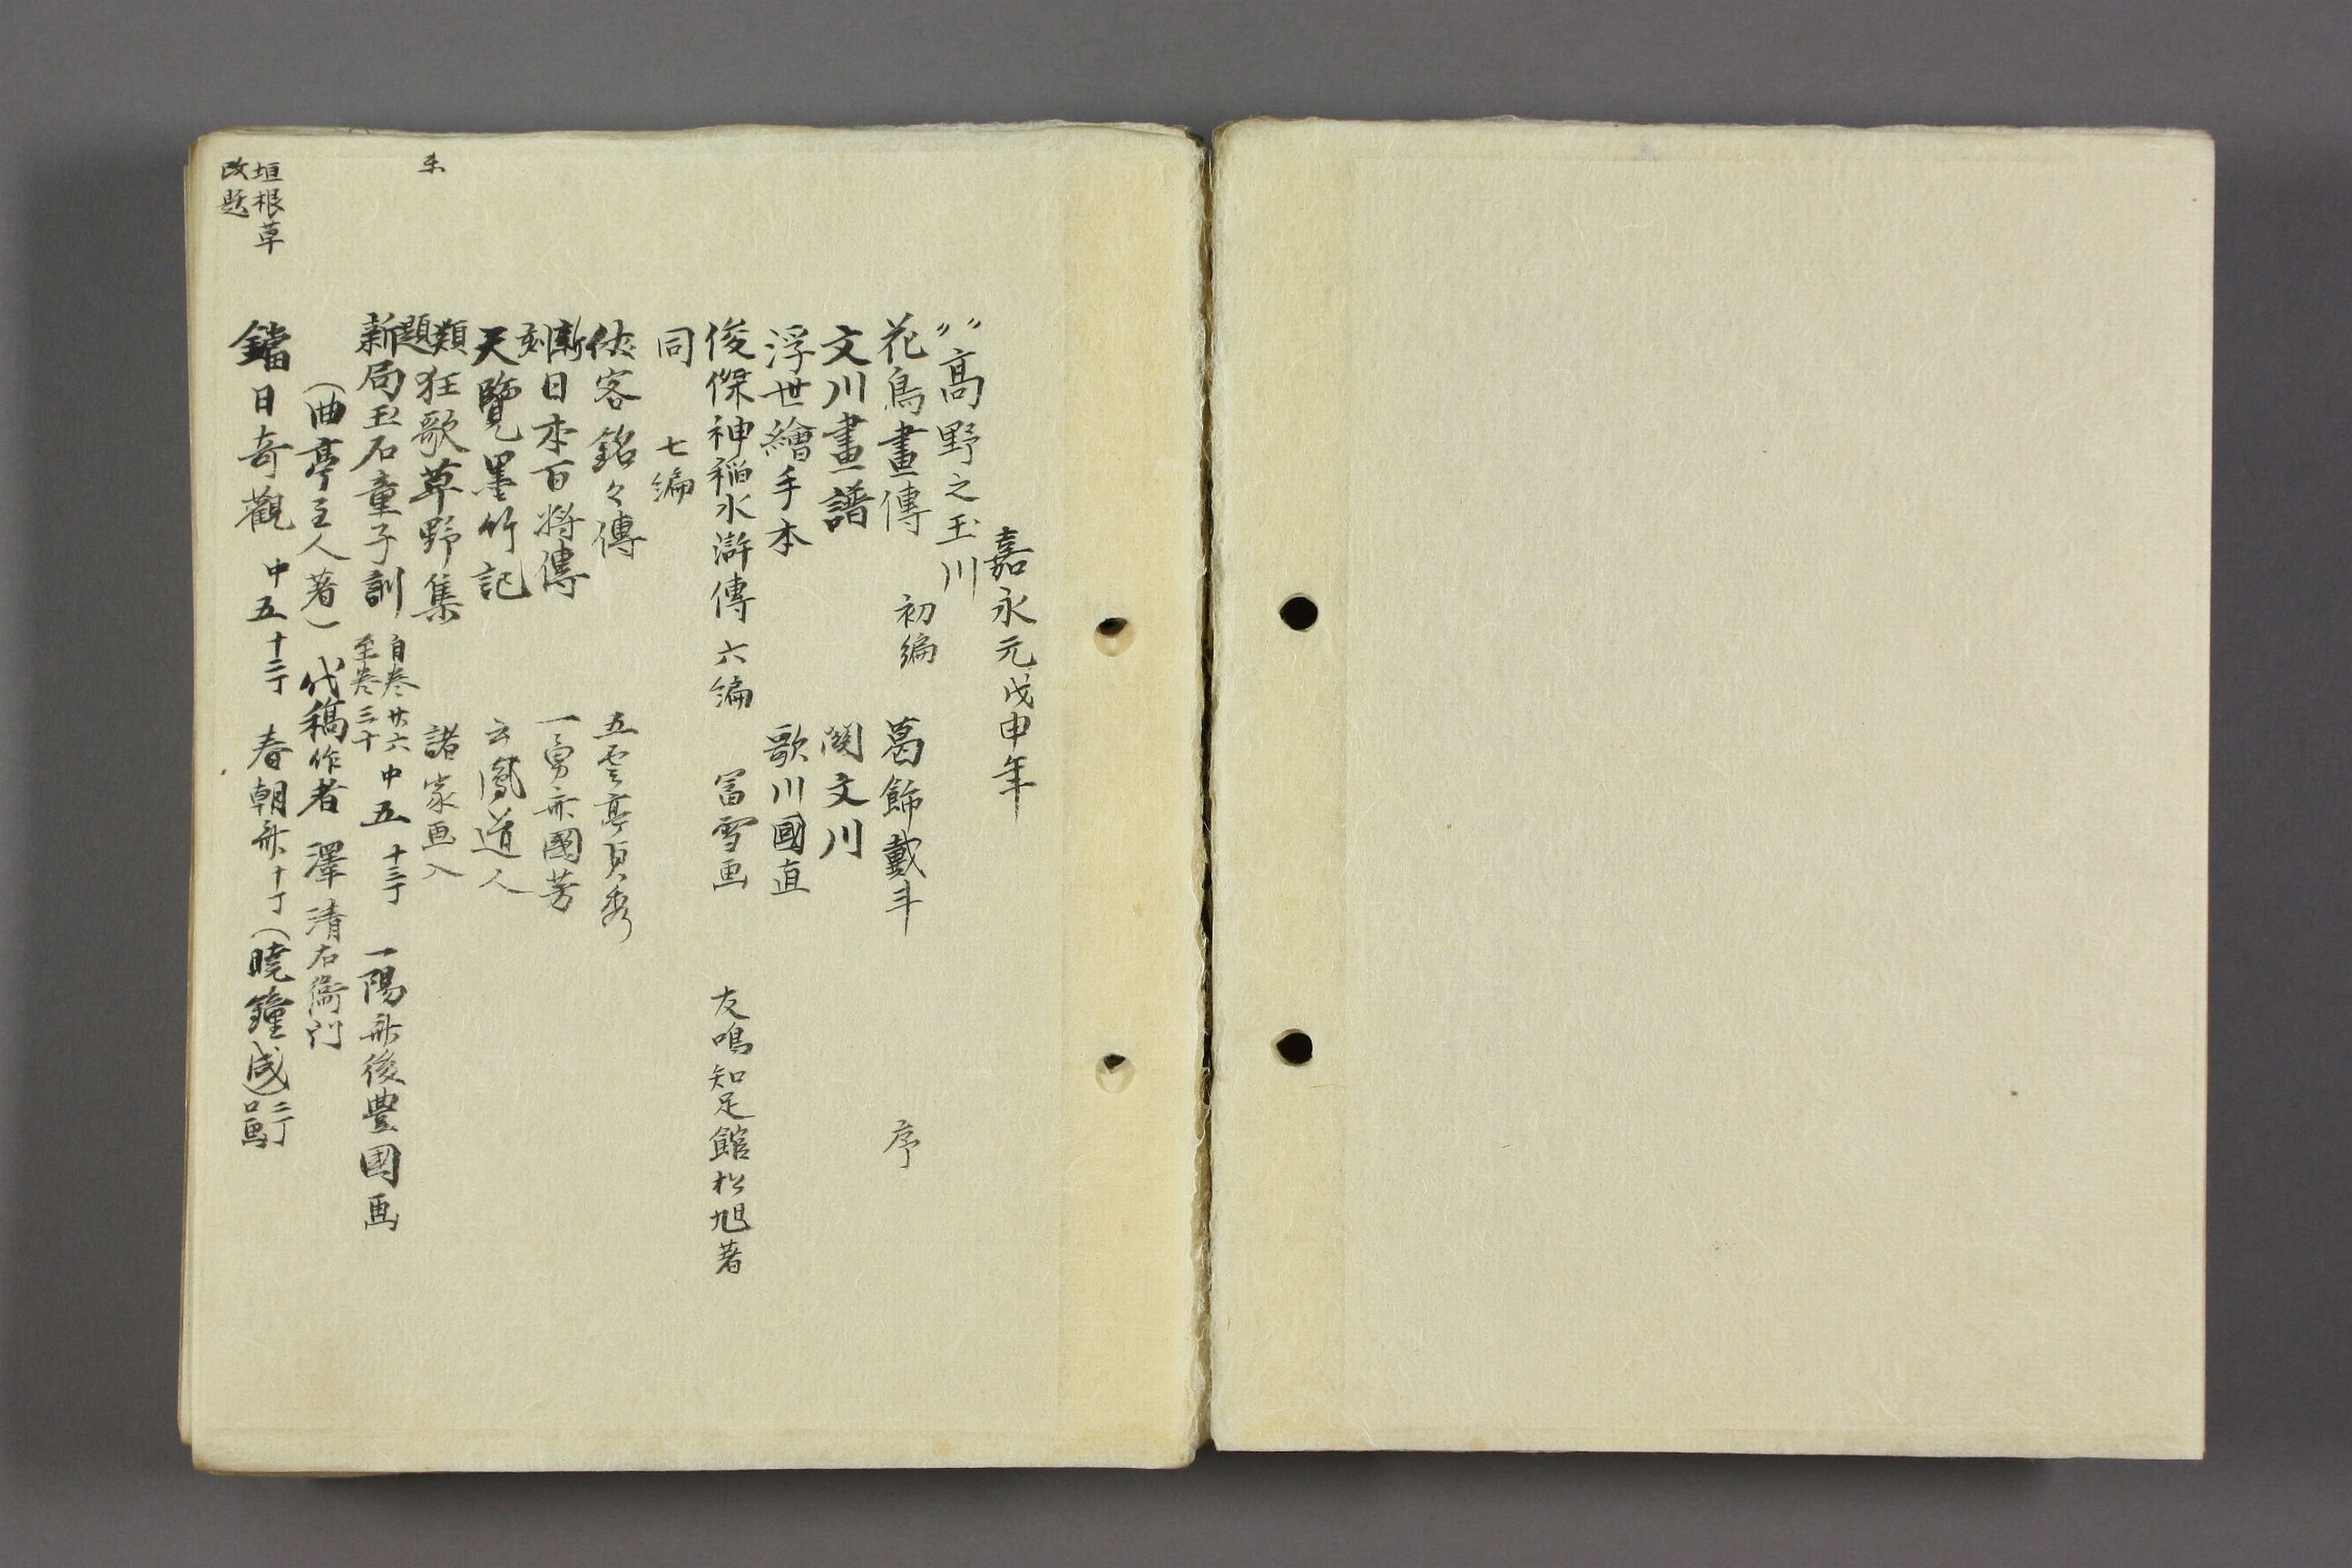 嘉永元戊申年
〃高野之玉川
花鳥畫傳 初編 葛飾戴斗 序
文川畫譜 関文川
浮世繪手本 歌川國直
俊傑神稲水滸傳 六編 冨雪画 友鳴知足館松旭著
同 七編
侠客銘々傳 五雲亭貞秀
新刻 日本百將傳 一勇斎國芳
天覽墨竹記 云鳳道人
類題 狂歌草野集 諸家画入
新局玉石童子訓 自巻廿六 至巻三十 中五 十三丁 一陽斎後豊國画
(曲亭主人著) 代稿作者 澤清右衛門
垣根草
改題
鐺日奇觀 中五 十二丁 春朝斎 十丁 (曉鐘成) 二丁